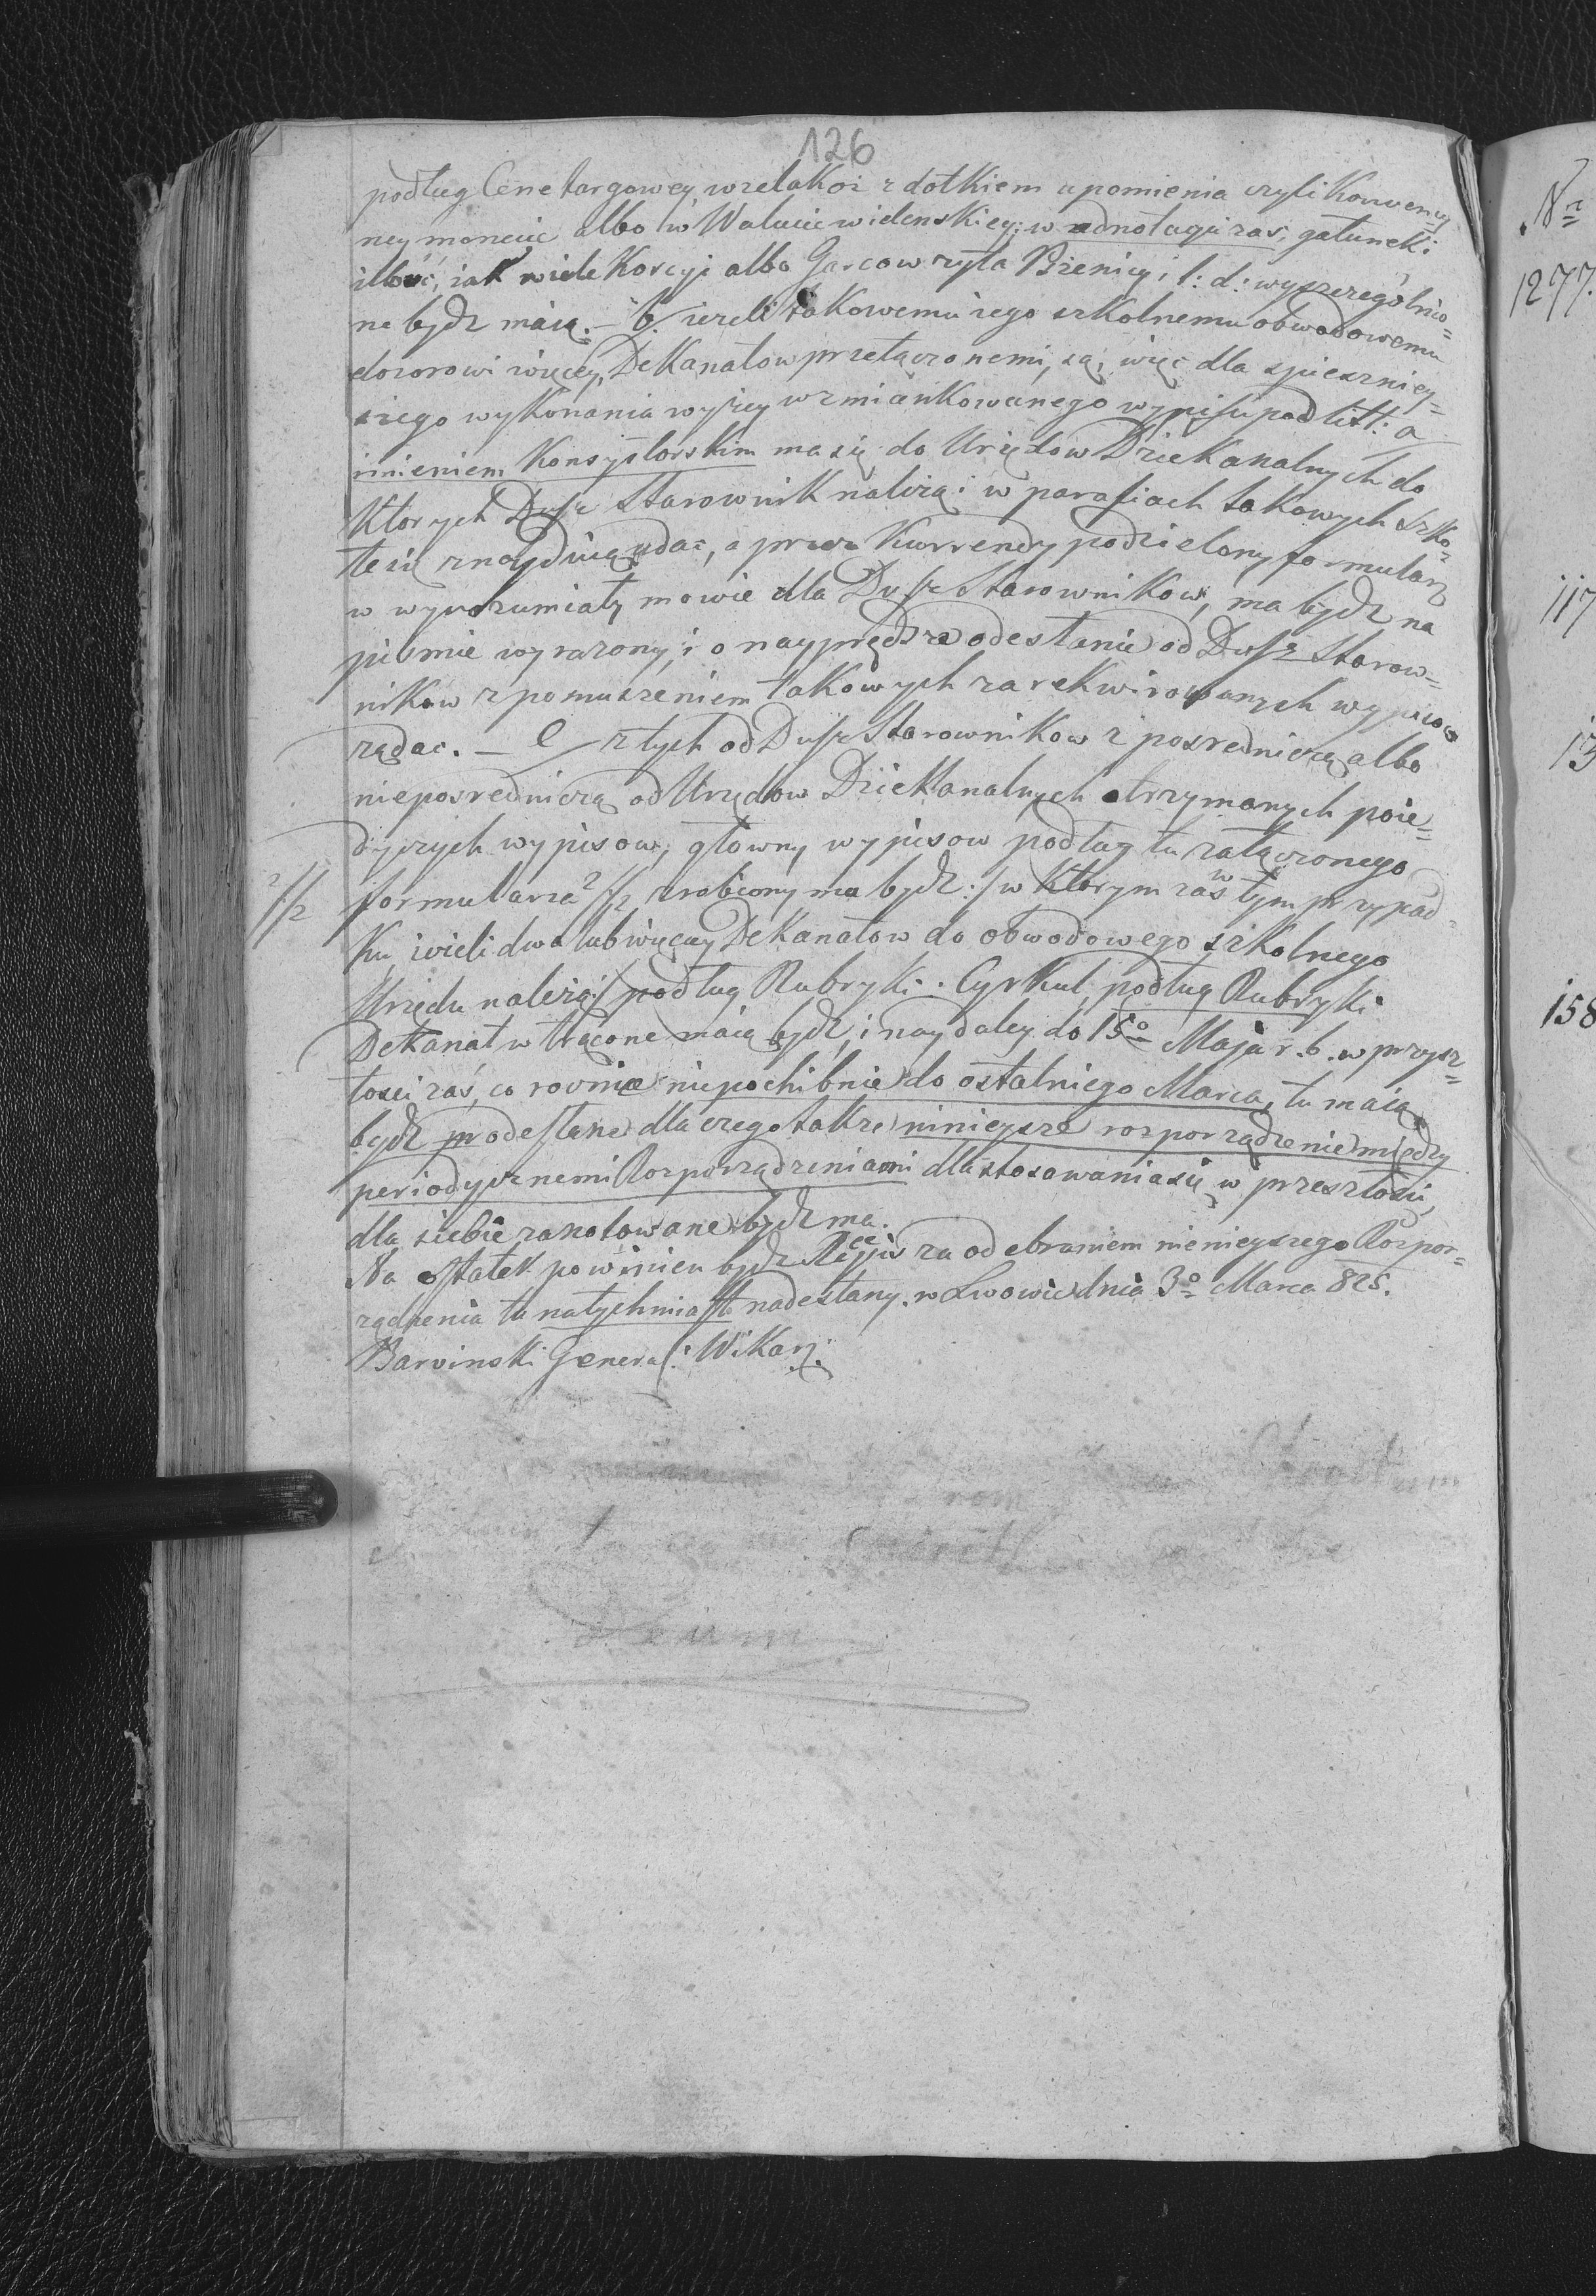 126
podług Cene targowey, wszelakoż z dotkiem upomienia czyli Konwency
ney moneciе albo w Walucie wiedenskiey; w adnotacyi zas, gatunek i
ilosć, iak wiele Korcyi albo Garcow zyta Pszenicy i t: d: wyszczególnio=
ne bydz maią. – b. iezeli takowemu iego szkolnemu obwodowemu
dozorowi więcey Dekanatow przełączonemi, są, więc dla spieszniey=
szego wykonania wyżey wzmiankowanego wypisu pod litt: a
imieniem Konsystorskim ma się do Urzędow Dziekanalnych do
Ktorych Dusz Starownik należą i w parafiach takowych Szko=
te się znayduią udać, a przez Kurrendy podzielony formularz
w wyrozumiały mowie dla Dusz Starownikow, ma bydz na
piśmie wyrazony, i o nayprędsze odesłanie od Dusz Starow=
nikow z pomuszeniem takowych zarekwirowanych wypisow
ządac. – C ztych od Dusz Starownikow z posrednicą albo
nieposredniczą od Urzędow Dziekanalnych otrzymanych poie=
dyczych wypisow, głowny wypisow podług tu załączonego
2/./2 formularza 2/./2 zrobiony ma bydz :/ w Ktorym zaś w tym przypad=
Ku, iezeli dwa lub więcey Dekanatow do obwodowego szkolnego
Urzędu należą :/ podług Rubryki. Cyrkul, podług Rubryki
Dekanat wtrącone maią bydz, i naydaley do 15o Maja r. b. w przysz=
łosci zaś, co rovnie niepochibnie do ostatniego Marca, tu maią
bydz pr odesłane dla czego także ninieysze rozporządzenie między
periodycznemi Rozporządzeniami dla stosowania się w przeszłosci,
dla siebie zanotowane bydz ma.
Na ostatek powinien bydz Recepis za odebraniem ninieyszego Rozpor=
ządzenia tu natychmiast nadesłany. w Lwowie dnia 3o Marca 825.
Barvinski General: Wikarj.
Nr
1277.
117
13
158